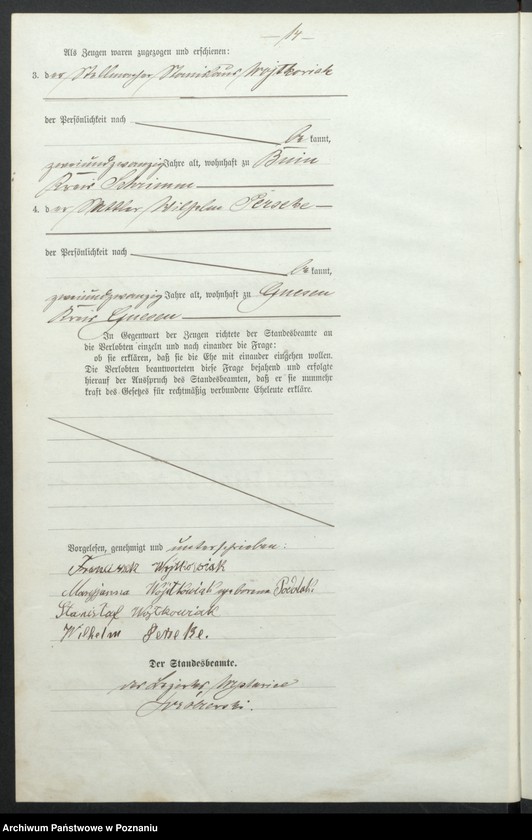 — 14 —
Als Zeugen waren zugezogen und erschienen:
3. der Stellmacher Stanislaus Wojtkowiak
der Persönlichkeit nach
be kannt,
zweiundzwanzig Jahre alt, wohnhaft zu Bnin
Kreis Schrimm
4. der Sattler Wilhelm
der Persönlichkeit nach
be kannt,
zweiundzwanzig Jahre alt, wohnhaft zu Gnesen
Kreis Gnesen
In Gegenwart der Zeugen richtete der Standesbeamte an
die Verlobten einzeln und nach einander die Frage:
ob sie erklären, daß sie die Ehe mit einander eingehen wollen.
Die Verlobten beantworteten diese Frage bejahend und erfolgte
hierauf der Ausspruch des Standesbeamten, daß er sie nunmehr
kraft des Gesetzes für rechtmäßig verbundene Eheleute erkläre.
Vorgelesen, genehmigt und unterschrieben:
Franciszek Wojtkowiak
Maryjanna Wojtkowiak geborena
Stanisław Wojtkowiak
Wilhelm
Der Standesbeamte.
des Bezirks
Archiwum Państwowe w Poznaniu